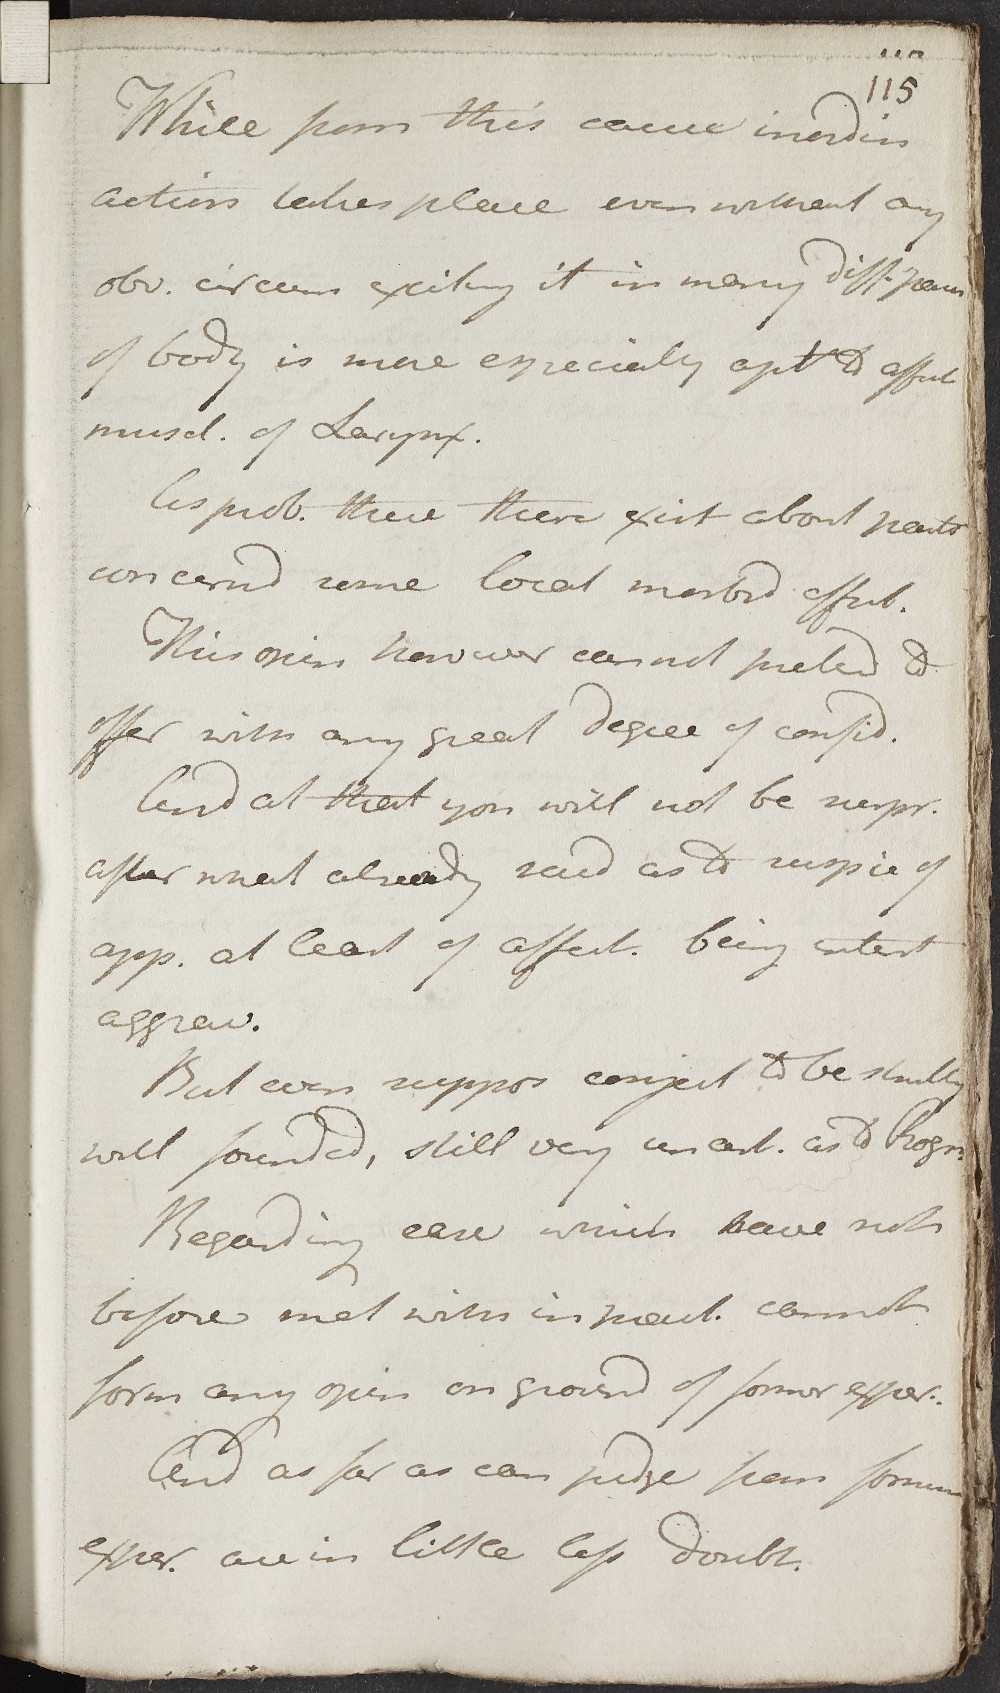 115
While from this cause inordin
action takes place even without any
obv. circum exciting it in many diff. parts
of body is more especially apt to affect
muscl. of Larynx.
As prob. there there exist about parts
concernd some local morbid affect.
This opin however cannot pretend to
offer with any great degree of confid.
And at that you will not be surpr.
after what already said as to suspic of
app. at least of affect. being intent
aggrav.
But even suppos conject to be
well founded, still very uncert. as to Progn.
Regarding case which have not
before met with in pract. cannot
form any opin on ground of former exper.
And as far as can judge from former
exper. are in little less doubt.